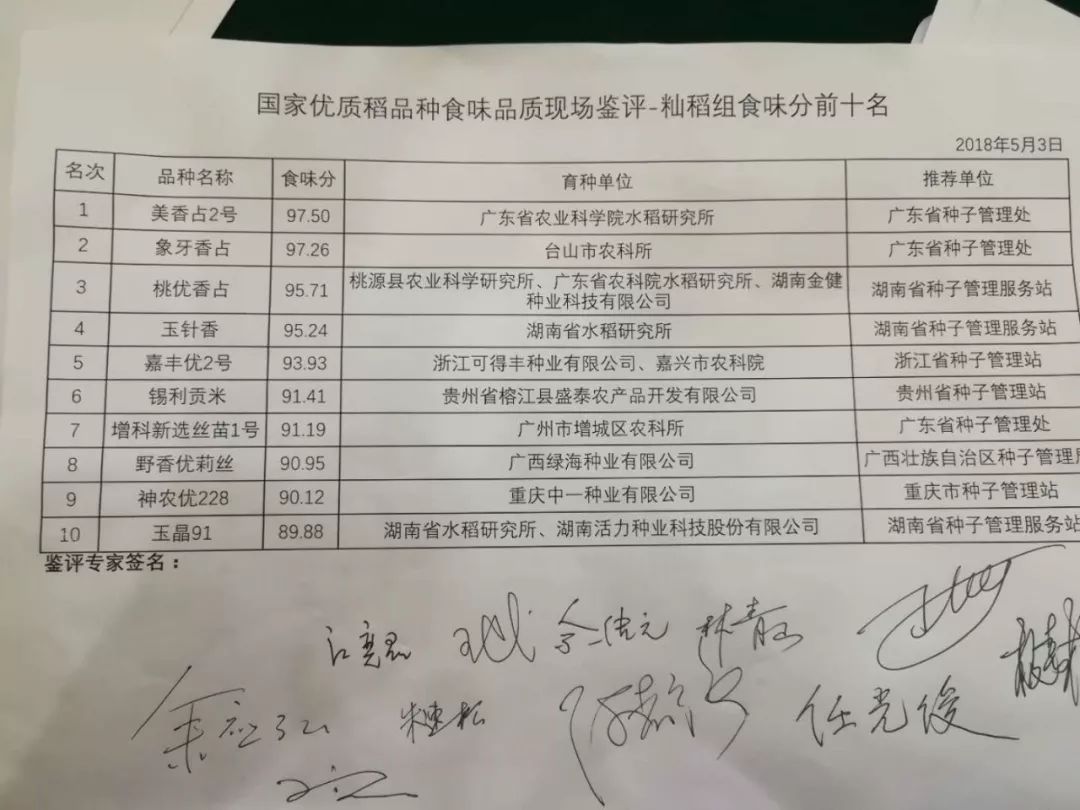 国家优质稻品种食味品质现场鉴评-籼稻组食味分前十名
2018年5月3日
名次 品种名称 食味分 育种单位 推荐单位
1 美香占2号 97.50 广东省农业科学院水稻研究所 广东省种子管理处
2 象牙香占 97.26 台山市农科所 广东省种子管理处
3 桃优香占 95.71 桃源县农业科学研究所、广东省农科院水稻研究所、湖南金健 湖南省种子管理服务站
种业科技有限公司
4 玉针香 95.24 湖南省水稻研究所 湖南省种子管理服务站
5 嘉丰优2号 93.93 浙江可得丰种业有限公司、嘉兴市农科院 浙江省种子管理站
6 锡利贡米 91.41 贵州省榕江县盛泰农产品开发有限公司 贵州省种子管理站
7 增科新选丝苗1号 91.19 广州市增城区农科所 广东省种子管理处
8 野香优莉丝 90.95 广西绿海种业有限公司 广西壮族自治区种子管理
9 神农优228 90.12 重庆中一种业有限公司 重庆市种子管理站
10 玉晶91 89.88 湖南省水稻研究所、湖南活力种业科技股份有限公司 湖南省种子管理服务站
鉴评专家签名：
林青
任光俊